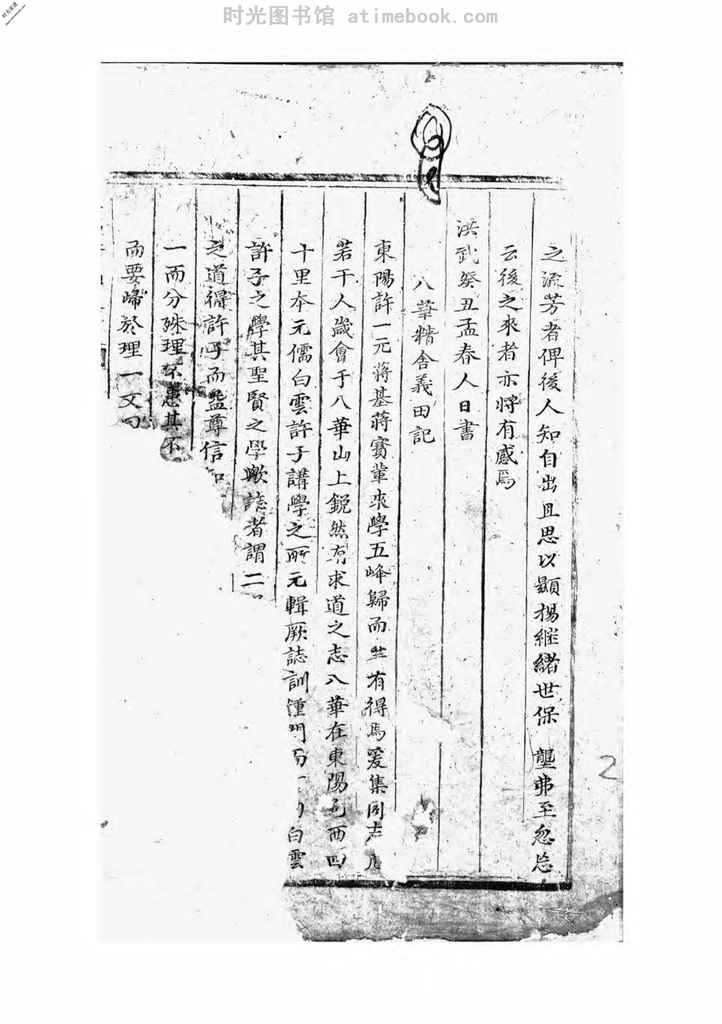 时光图书馆 atimebook.com
之流芳者俾後人知自出且思以顯揚繼緒世保壟弗至忽忘
云後之來者亦將有感焉
洪武癸丑孟春人日書
八華精舍義田記
東陽許一元將基蔣賓輩來學五峰歸而 有得焉爰集同志
若干人歲會于八華山上鋭然有求道之志八華在東陽 西四
十里本元儒白雲許子講學之所元輯厥誌訓 白雲
許子之學其聖賢之學歟誌者謂二
之道得許子而益尊信
一而分殊理不患其不
而要歸於理一文
2